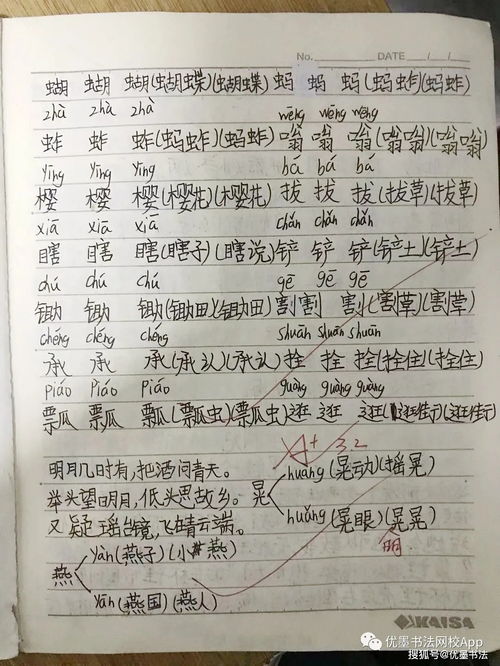 No. DATE / /
蝴 蝴 蝴(蝴蝶)(蝴蝶) 蚂 蚂 蚂(蚂蚱)(蚂蚱)
zhà zhà zhà wēng wēng wēng
蚱 蚱 蚱(蚂蚱)(蚂蚱) 嗡 嗡 嗡(嗡嗡)(嗡嗡)
Yīng Yīng Yīng bá bá bá
樱 樱 樱(樱花)(樱花) 拔 拔 拔(拔草)(拔草)
xiā xiā xiā chǎn chǎn chǎn
瞎 瞎 瞎(瞎子)(瞎说) 铲 铲 铲(铲土)(铲土)
chú chú chú gē gē gē
锄 锄 锄(锄田)(锄田) 割 割 割(割草)(割草)
chéng chéng chéng shuān shuān shuān
承 承 承(承认)(承认) 拴 拴 拴(拴住)(拴住)
Piáo Piáo Piáo guàng guàng guàng
瓢 瓢 瓢(瓢虫)(瓢虫) 逛 逛 逛(逛街)(逛街)
A+ 3.2
明月几时有,把酒问青天。
举头望明月,低头思故乡。
又疑瑶台镜,飞在青云端。
晃 huàng(晃动)(摇晃)
huǎng(晃眼)(晃晃)
明
燕 yàn(燕子)(小燕)
yān(燕国)(燕人)
KAISA
优墨书法网校App
搜狐号@优墨书法